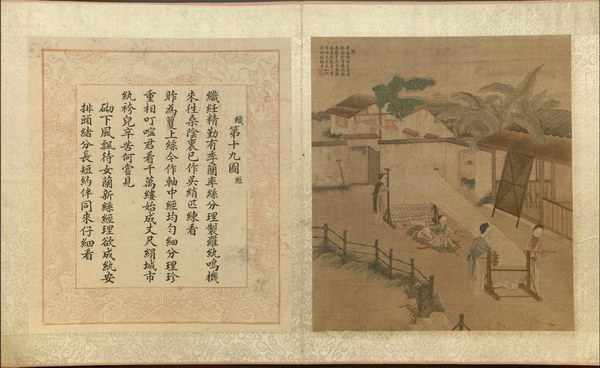 織第十九圖 經
織紝精勤有季蘭牽絲分理製羅紈鳴機
來往桑陰裏已作吳綃匹練看
昨為籰上絲今作軸中經均勻細分理珍
重相叮嚀君看千萬縷始成丈尺絹城市
紈袴兒辛苦何嘗見
砌下風飄待女蘭新絲經理欲成紈安
排頭緒分長短約伴同來仔細看